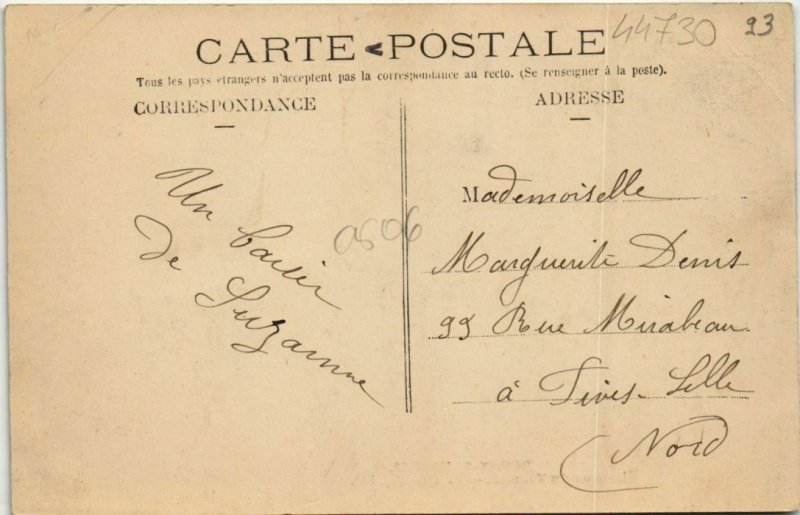 44730
23
CARTE POSTALE
Tous les pays étrangers n'acceptent pas la correspondance au recto. (Se renseigner à la poste).
CORRESPONDANCE
ADRESSE
Un baiser
de Suzanne
0506
Mademoiselle
Marguerite Denis
99 Rue Mirabeau
à Fives-Lille
(Nord